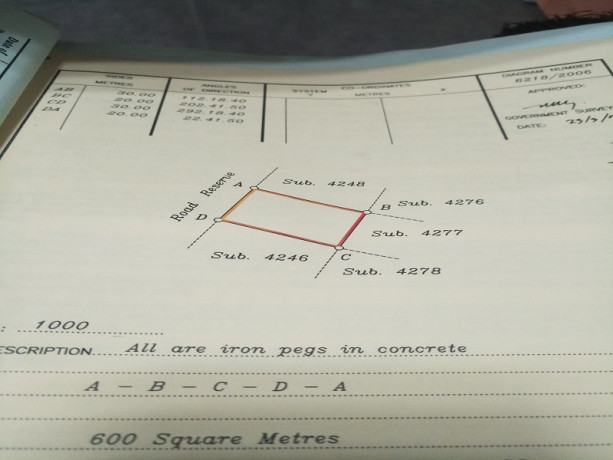 SIDES METRES
ANGLES OF DIRECTION
SYSTEM
CO-ORDINATES METRES
DIAGRAM NUMBER
6218/2006
APPROVED:
GOVERNMENT SURVEY
DATE:
AB 30.00 112.18.40
BC 20.00 202.41.50
CD 30.00 292.18.40
DA 20.00 22.41.50
Road Reserve
A
Sub. 4248
B
Sub. 4276
D
Sub. 4277
Sub. 4246
C
Sub. 4278
: 1000
ESCRIPTION All are iron pegs in concrete
A - B - C - D - A
600 Square Metres